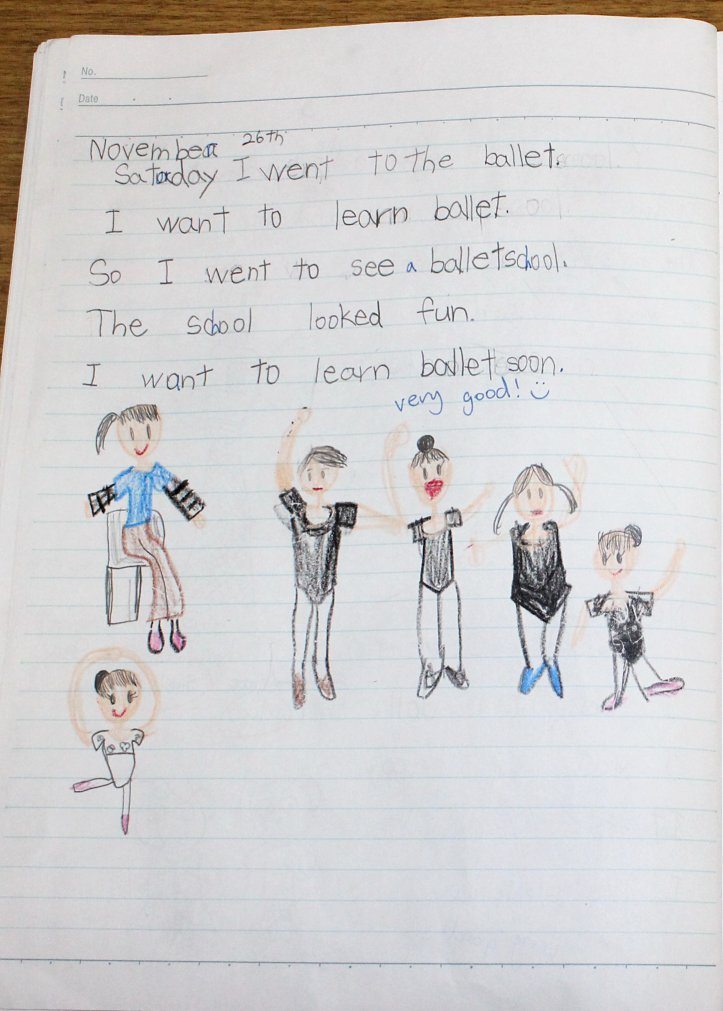 No.
Date
November 26th
Saturday I went to the ballet.
I want to learn ballet.
So I went to see a balletschool.
The school looked fun.
I want to learn ballet soon.
very good!